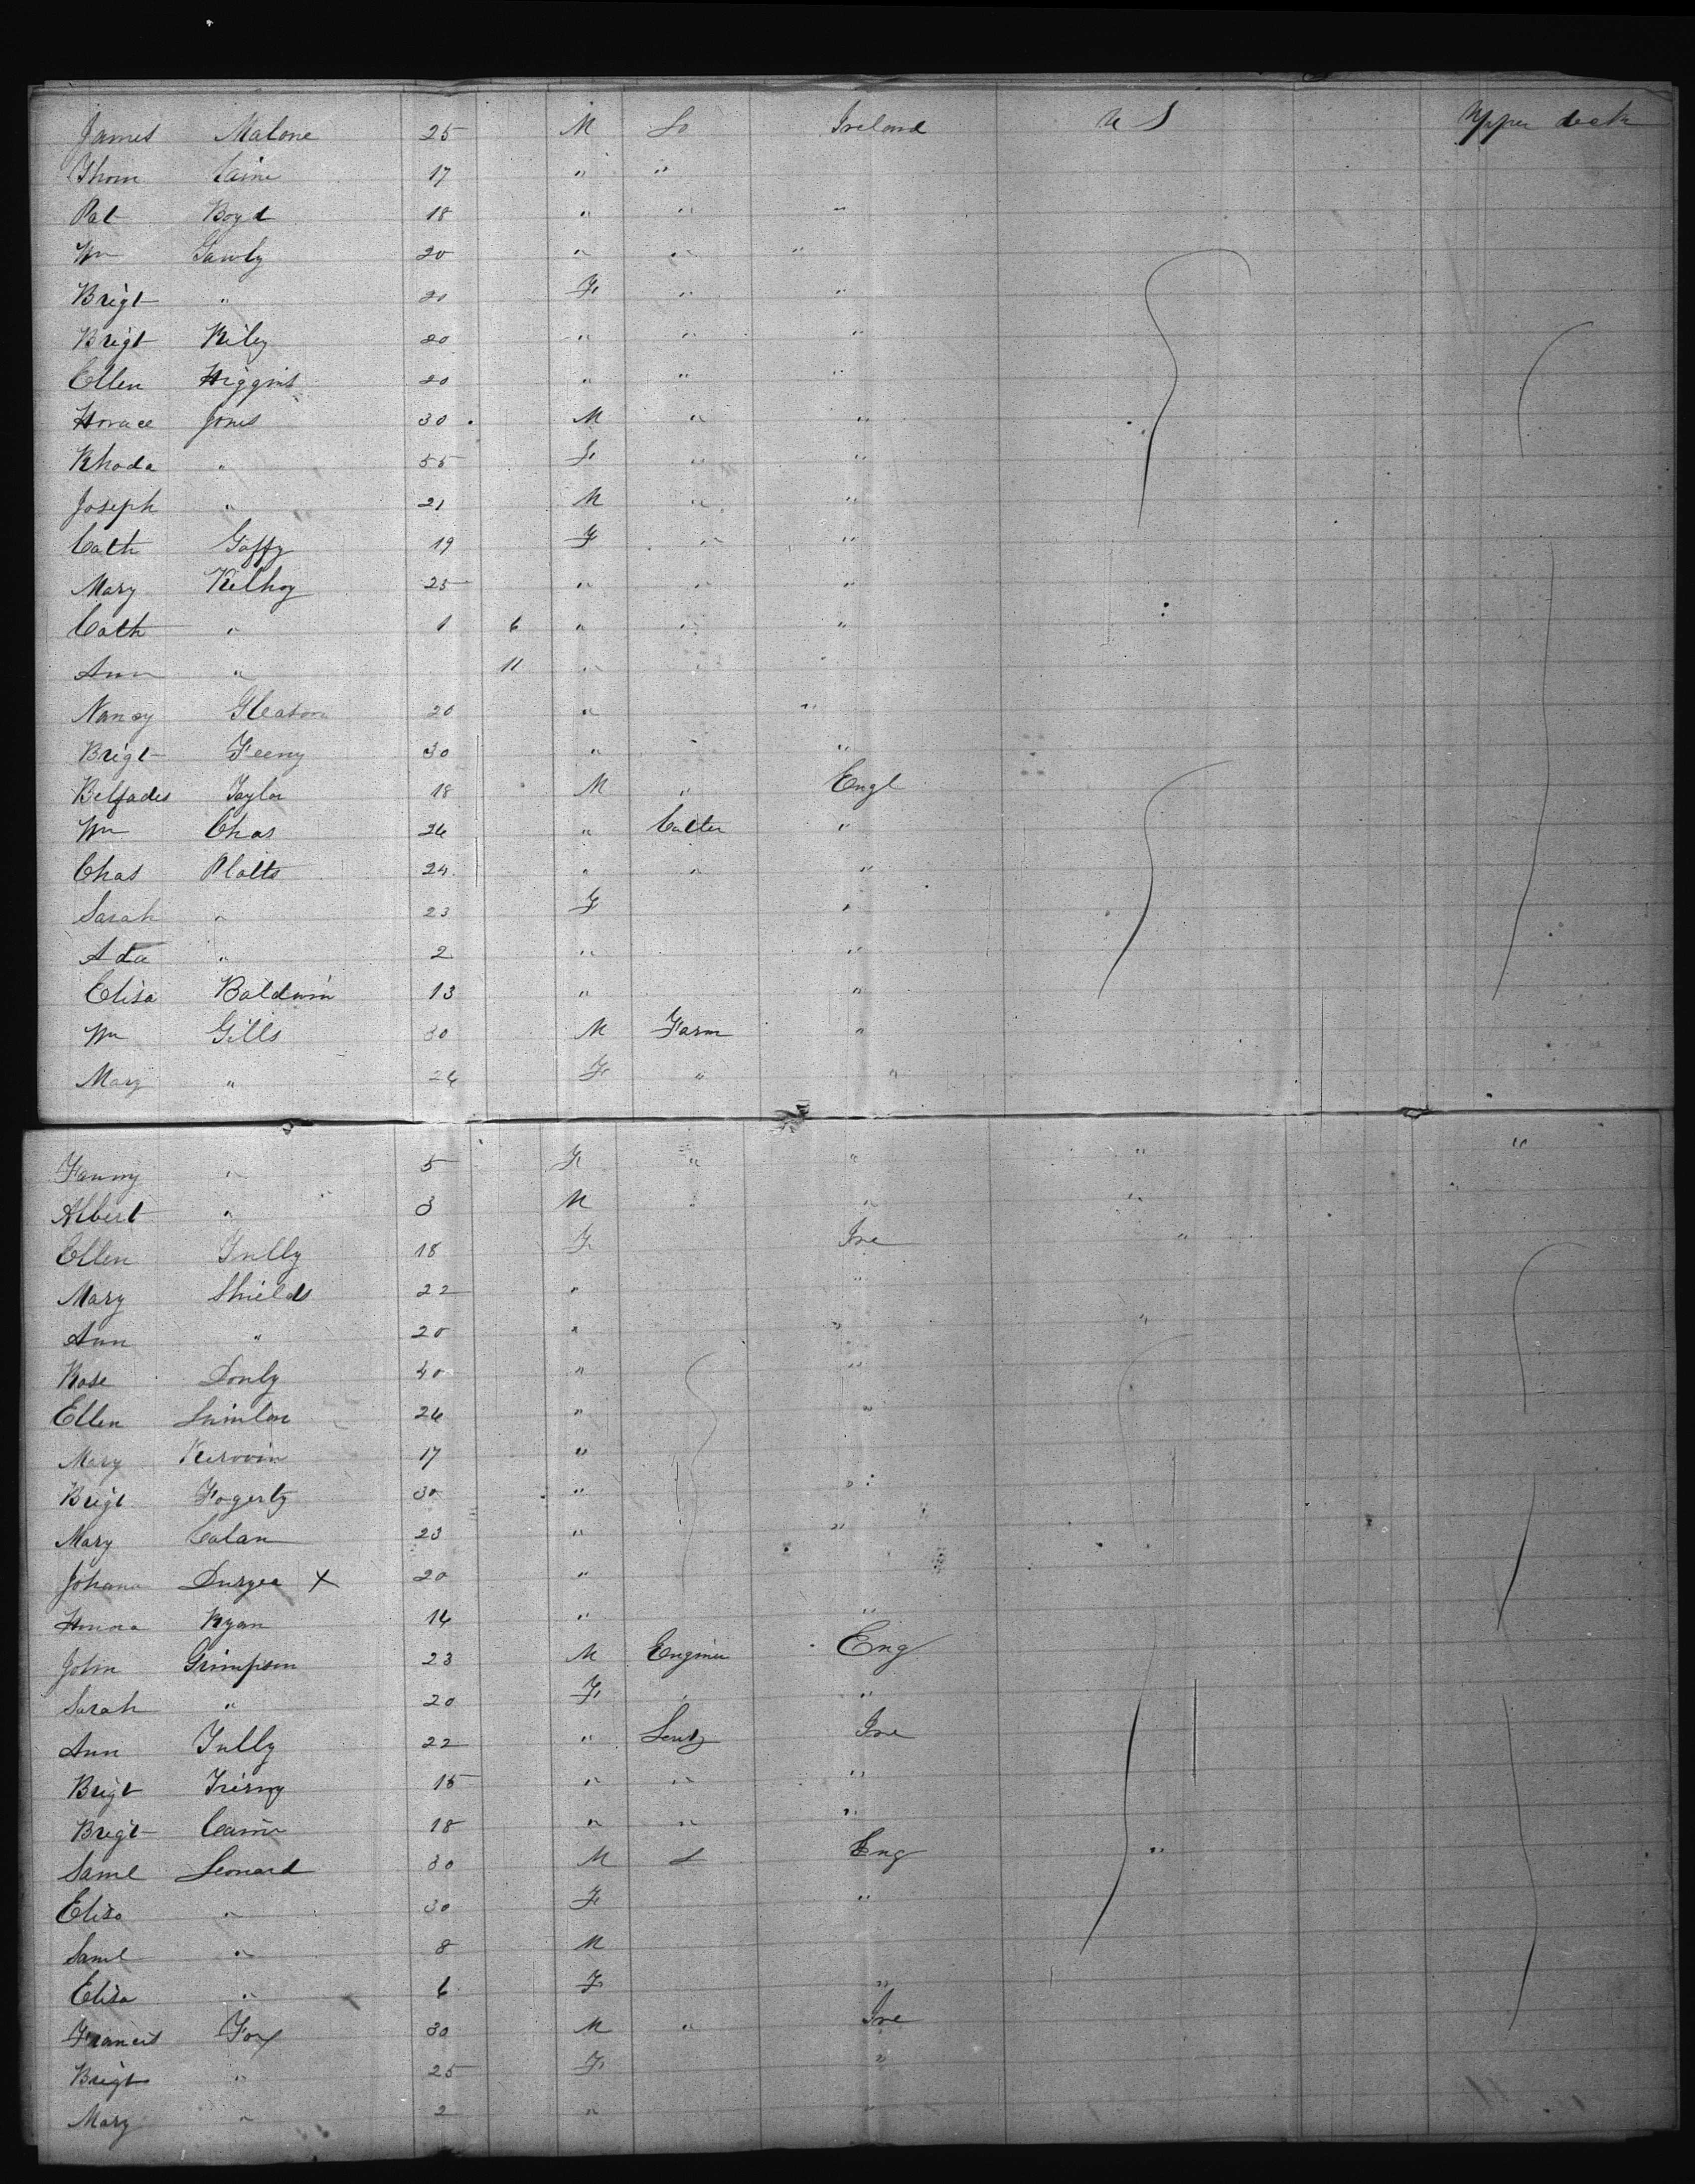 James Malone 25 M Lo Ireland U S Upper deck
Thom Caine 17 " "
Pat Boyd 18 " " "
Wm Gawly 20 " " "
Brigt " 20 F " "
Brigt Riley 20 " " "
Ellen Higgins 20 " " "
Horace Jones 30 M " "
Rhoda " 55 F " "
Joseph " 21 M " "
Cath Gaffy 19 F " "
Mary Kelhoy 25 " " "
Cath " 1 6 " " "
Ann " 11 " " "
Nancy Gleason 20 " "
Brigt Feeny 30 " "
Taylor 18 M " Engl
Wm Chas 26 " Cutler "
Chas Platts 24 " " "
Sarah " 23 F "
Ada " 2 " "
Elisa Baldwin 13 " "
Wm Gills 30 M Farm "
Mary " 26 F " "
Fanny " 5 F " " " "
Albert " 3 M " " "
Ellen Tully 18 F Ire "
Mary Shields 22 " "
Ann " 20 " " "
Rose Donly 40 " "
Ellen 26 " "
Mary Kerovin 17 "
Brigt Fogerty 30 " "
Mary Calan 23 " "
Johana Duryea X 20 "
Honora Ryan 14 " "
John Grimpson 23 M Enginer Eng
Sarah " 20 F " "
Ann Tully 22 " Ire
Brigt 15 " " "
Brigt Caine 18 " " "
Saml Leonard 30 M L Eng "
Elisa " 30 F "
Saml " 8 M
Elisa " 6 F "
Francis Fox 30 M " Ire
Brigt " 25 F "
Mary " 2 " "